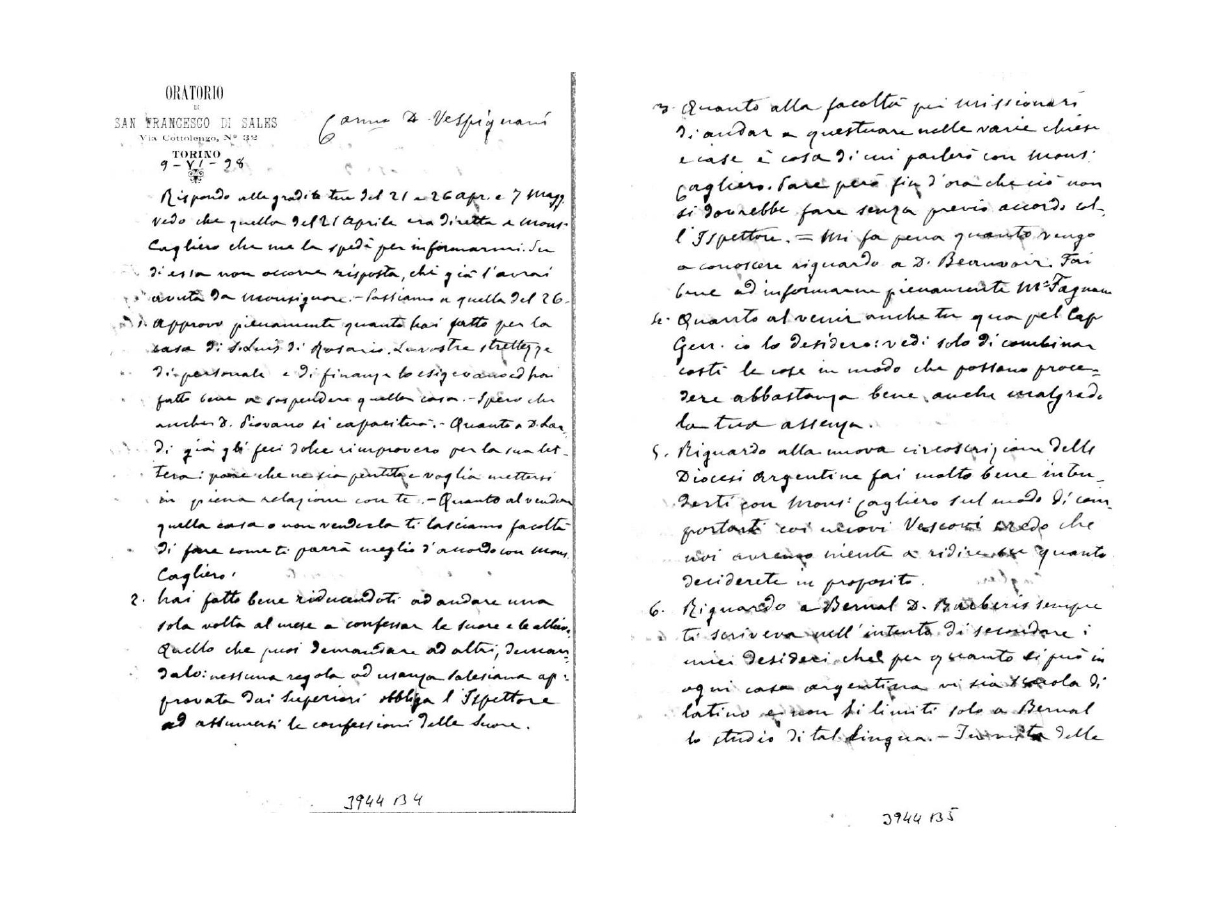 ORATORIO
DI
SAN FRANCESCO DI SALES
Via Cottolengo, N° 32
TORINO
9-VI-28
Carmo D. Vespignani
Rispondo alle gradite tue del 21 e 26 Apr. e 7 Magg.
vedo che quella del 21 Aprile era diretta a Mons.
Cagliero che me la spedì per informarmi. Su
di essa non occorre risposta, chè già l'avrai
avuta da Monsignore. - Passiamo a quella del 26.
1. Approvo pienamente quanto hai fatto per la
casa di S. Luis di Rosario. Le vostre strettezze
di personale e di finanza lo esigevano ed hai
fatto bene a sospendere quella casa. - Spero che
anche D. Piovano si capaciterà. - Quanto a D.
di già gli feci dolce rimprovero per la sua let-
tera: pare che ne sia pentito e voglia mettersi
in piena relazione con te. - Quanto al vendere
quella casa o non venderla ti lasciamo facoltà
di fare come ti parrà meglio d'accordo con Mons.
Cagliero.
2. hai fatto bene riducendoti ad andare una
sola volta al mese a confessar le suore e le allieve.
Quello che puoi demandare ad altri, deman-
dalo: nessuna regola od usanza salesiana ap-
provata dai Superiori obbliga l'Ispettore
ad assumersi le confessioni delle Suore.
3944 B 4
3. Quanto alla facoltà pei missionari
di andar a questuare nelle varie chiese
e case è cosa di cui parlerò con Mons.
Cagliero. Pare però fin d'ora che ciò non
si dovrebbe fare senza previo accordo col-
l'Ispettore. = Mi fa pena quanto vengo
a conoscere riguardo a D. Beauvoir. Fai
bene ad informarne pienamente Mr Fagnano
4. Quanto al venir anche tu qua pel Cap
Gen. io lo desidero: vedi solo di combinar
costì le cose in modo che possano proce-
dere abbastanza bene anche malgrado
la tua assenza.
5. Riguardo alla nuova circoscrizione delle
Diocesi Argentine fai molto bene inten-
derti con Mons. Cagliero sul modo di com-
portarti coi nuovi Vescovi credo che
noi avremo niente a ridire su quanto
deciderete in proposito.
6. Riguardo a Bernal D. Barberis sempre
ti scriveva nell'intento di secondare i
miei desideri che per quanto si può in
ogni casa argentina vi sia scuola di
latino e non si limiti solo a Bernal
lo studio di tal lingua. - In vista delle
3944 B5